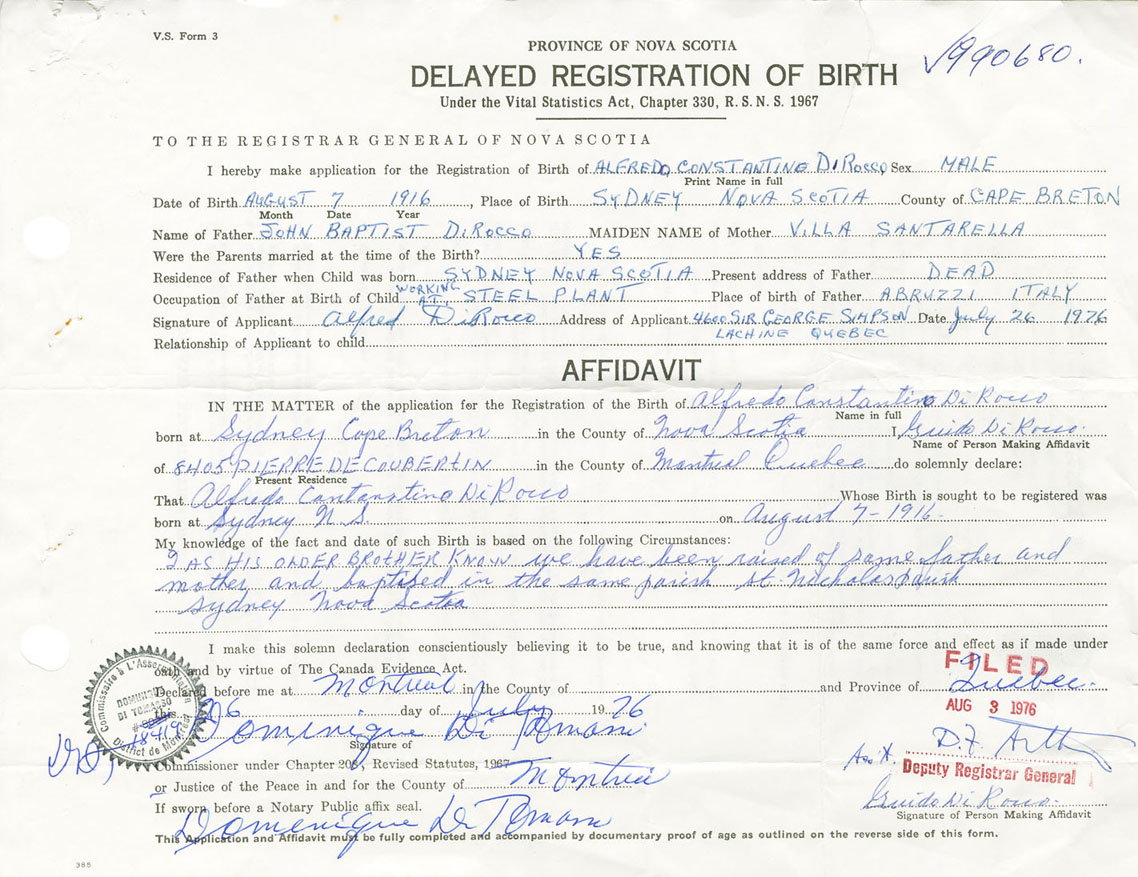 V.S. Form 3
PROVINCE OF NOVA SCOTIA
990680.
DELAYED REGISTRATION OF BIRTH
Under the Vital Statistics Act, Chapter 330, R.S.N.S. 1967
TO THE REGISTRAR GENERAL OF NOVA SCOTIA
I hereby make application for the Registration of Birth of ALFREDO CONSTANTINO DIROCCO Sex MALE
Print Name in full
Date of Birth AUGUST 7 1916, Place of Birth SYDNEY NOVA SCOTIA County of CAPE BRETON
Month Date Year
Name of Father JOHN BAPTIST DIROCCO MAIDEN NAME of Mother VILLA SANTARELLA
Were the Parents married at the time of the Birth? YES
Residence of Father when Child was born SYDNEY NOVA SCOTIA Present address of Father DEAD
Occupation of Father at Birth of Child WORKING AT STEEL PLANT Place of birth of Father ABRUZZI ITALY
Signature of Applicant Alfred DiRocco Address of Applicant 4600 SIR GEORGE SIMPSON Date July 26 1976
LACHINE QUEBEC
Relationship of Applicant to child
AFFIDAVIT
IN THE MATTER of the application for the Registration of the Birth of Alfredo Constantino Di Rocco
Name in full
born at Sydney Cape Breton in the County of Nova Scotia I Guido Di Rocco
Name of Person Making Affidavit
of 8405 PIERRE DE COUBERTIN in the County of Montreal Quebec do solemnly declare:
Present Residence
That Alfredo Cantanstino Di Rocco Whose Birth is sought to be registered was
born at Sydney N.S. on August 7-1916-
My knowledge of the fact and date of such Birth is based on the following Circumstances:
I AS HIS OLDER BROTHER KNOW we have been raised of same father and
mother and baptised in the same parish St. Nicholas parish
Sydney Nova Scotia
I make this solemn declaration conscientiously believing it to be true, and knowing that it is of the same force and effect as if made under
oath and by virtue of The Canada Evidence Act.
FILED
AUG 3 1976
Declared before me at Montreal in the County of and Province of Quebec.
this 26 day of July 1976
Commissaire à L'Assermentation
DOMINIQUE
DI TOMASSO
District de Montréal
Signature of
Commissioner under Chapter 205, Revised Statutes, 1967
Deputy Registrar General
or Justice of the Peace in and for the County of Montreal
Guido Di Rocco.
If sworn before a Notary Public affix seal.
Signature of Person Making Affidavit
This Application and Affidavit must be fully completed and accompanied by documentary proof of age as outlined on the reverse side of this form.
385